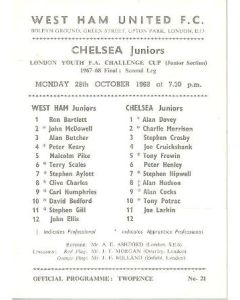 WEST HAM UNITED F.C.
BOLEYN GROUND, GREEN STREET, UPTON PARK, LONDON, E.13
CHELSEA Juniors
LONDON YOUTH F.A. CHALLENGE CUP (Junior Section)
1967-68 Final : Second Leg
MONDAY 28th OCTOBER 1968 at 7.30 p.m.
WEST HAM Juniors CHELSEA Juniors
1 Ron Bartlett 1 Alan Dovey
2 John McDowell 2 Charlie Morrison
3 Alan Butcher 3 Stephen Crosby
4 Peter Keary 4 Joe Cruickshank
5 Malcolm Pike 5 Tony Frewin
6 Terry Scales 6 Peter Tenley
7 Stephen Aylott 7 Stephen Hipwell
8 Clive Charles 8 Alan Hudson
9 Carl Humphries 9 Alan Cocks
10 David Bedford 10 Tony Potrac
11 Stephen Gill 11 Joe Larkin
12 John Ellis 12
Indicates Professional Indicates Apprentice Professionals
Referee: Mr. A. E. ASHFORD
Linesmen: Red Flag: Mr. J. T. MORGAN
Orange Flag: Mr. J. F. HOLLAND (Enfield, London)
OFFICIAL PROGRAMME: TWOPENCE No. 21